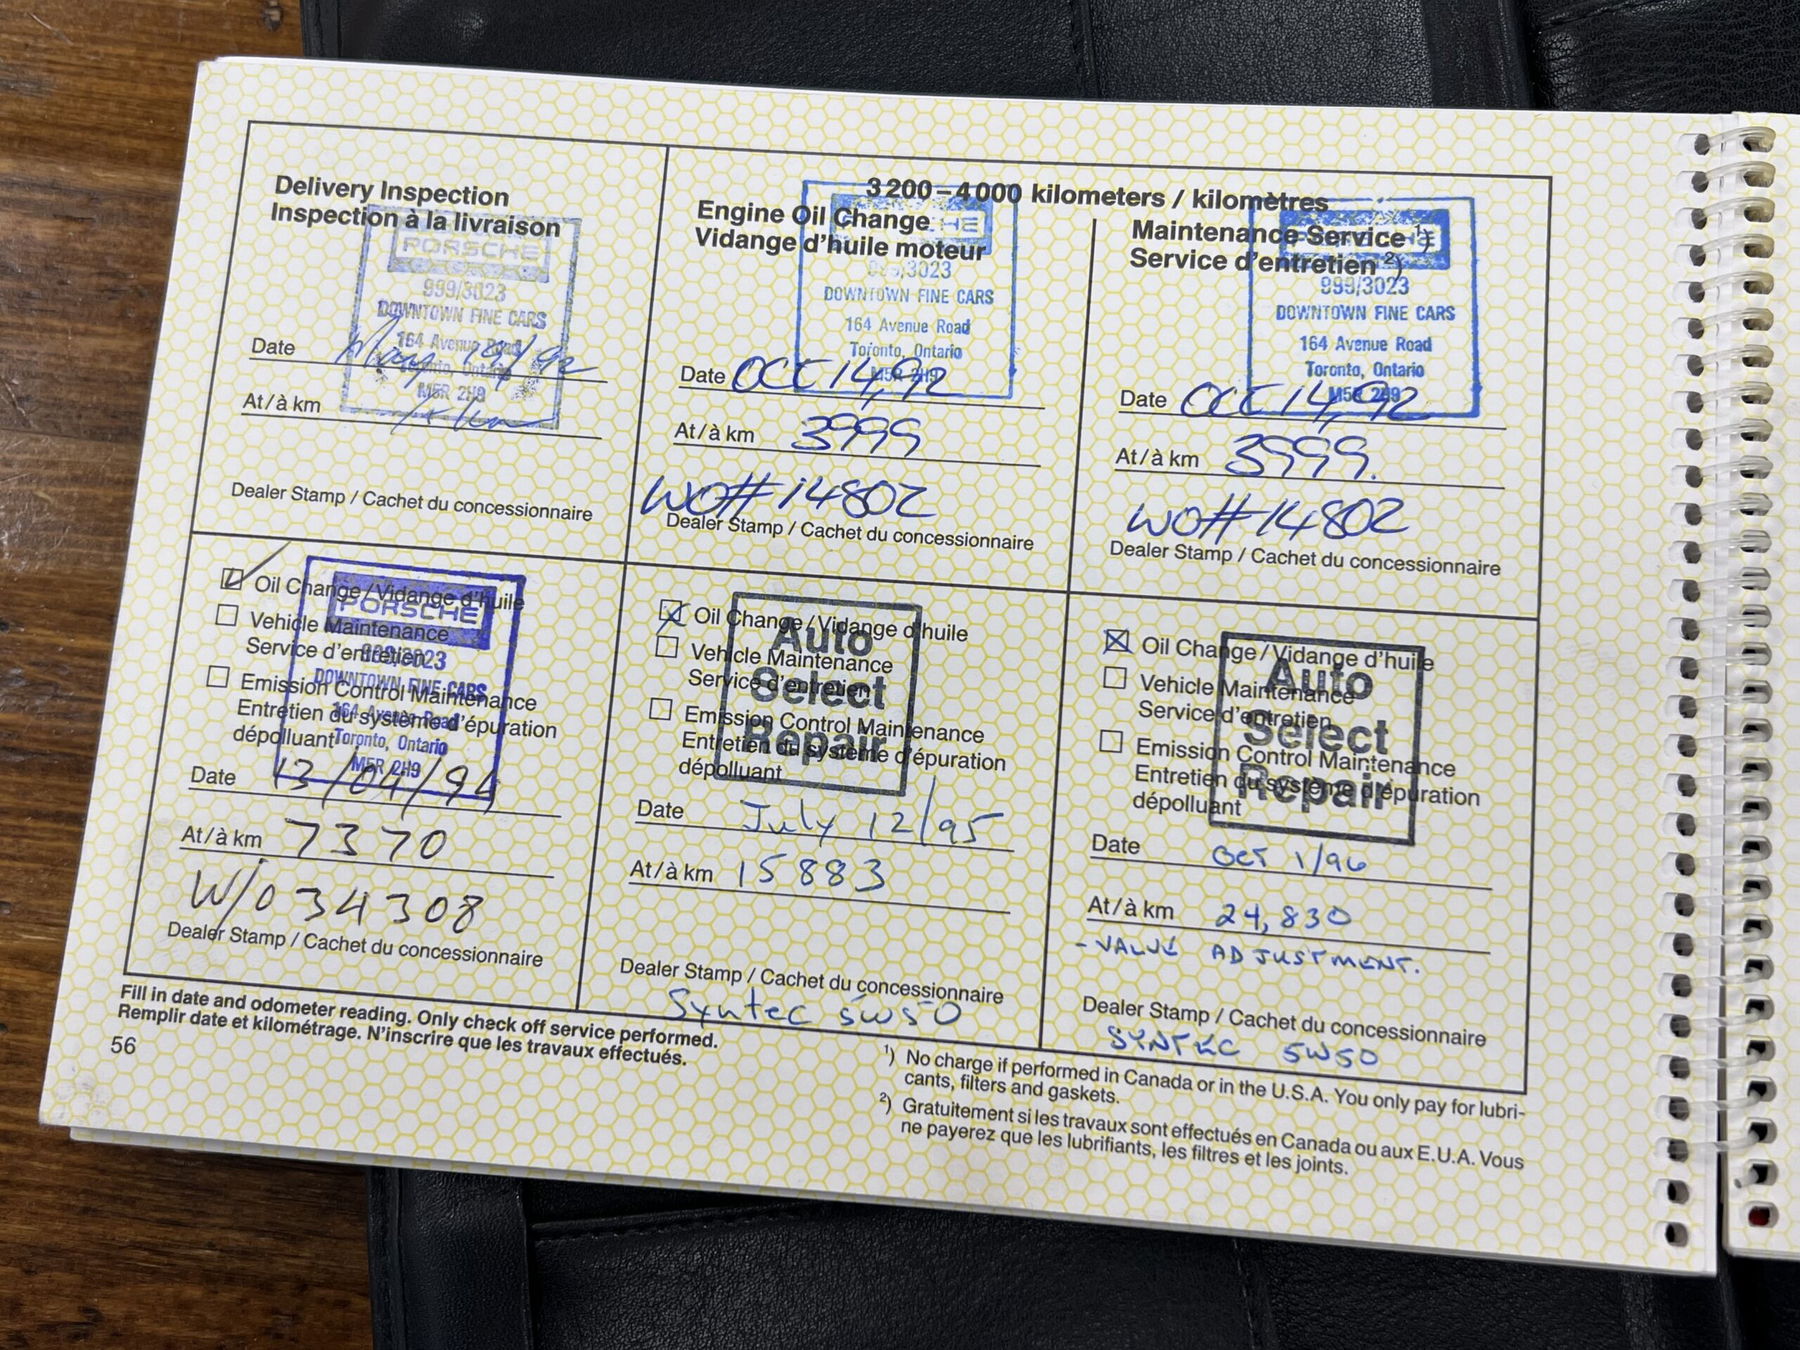 Delivery Inspection
Inspection à la livraison
PORSCHE
999/3023
DOWNTOWN FINE CARS
164 Avenue Road
Toronto, Ontario
M5R 2H9
Date May 19/92
At / à km km
Dealer Stamp / Cachet du concessionnaire
3 200 – 4 000 kilometers / kilomètres
Engine Oil Change
Vidange d'huile moteur
999/3023
DOWNTOWN FINE CARS
164 Avenue Road
Toronto, Ontario
M5R 2H9
Date OCT 14, 92
At / à km 3999
WO# 14802
Dealer Stamp / Cachet du concessionnaire
Maintenance Service 1)
Service d'entretien 2)
999/3023
DOWNTOWN FINE CARS
164 Avenue Road
Toronto, Ontario
M5R 2H9
Date OCT 14, 92
At / à km 3999.
WO# 14802
Dealer Stamp / Cachet du concessionnaire
Oil Change / Vidange d'huile
Vehicle Maintenance
Service d'entretien
Emission Control Maintenance
Entretien du système d'épuration
dépolluant
PORSCHE
999/3023
DOWNTOWN FINE CARS
164 Avenue Road
Toronto, Ontario
M5R 2H9
Date 13/04/94
At / à km 7370
W/O 34308
Dealer Stamp / Cachet du concessionnaire
Oil Change / Vidange d'huile
Vehicle Maintenance
Service d'entretien
Emission Control Maintenance
Entretien du système d'épuration
dépolluant
Auto
Select
Repair
Date July 12/95
At / à km 15883
Dealer Stamp / Cachet du concessionnaire
Syntec 5W50
Oil Change / Vidange d'huile
Vehicle Maintenance
Service d'entretien
Emission Control Maintenance
Entretien du système d'épuration
dépolluant
Auto
Select
Repair
Date OCT 1/96
At / à km 24,830
- VALVE ADJUSTMENT.
Dealer Stamp / Cachet du concessionnaire
SYNTEC 5W50
Fill in date and odometer reading. Only check off service performed.
Remplir date et kilométrage. N'inscrire que les travaux effectués.
56
1) No charge if performed in Canada or in the U.S.A. You only pay for lubri-
cants, filters and gaskets.
2) Gratuitement si les travaux sont effectués en Canada ou aux E.U.A. Vous
ne payerez que les lubrifiants, les filtres et les joints.